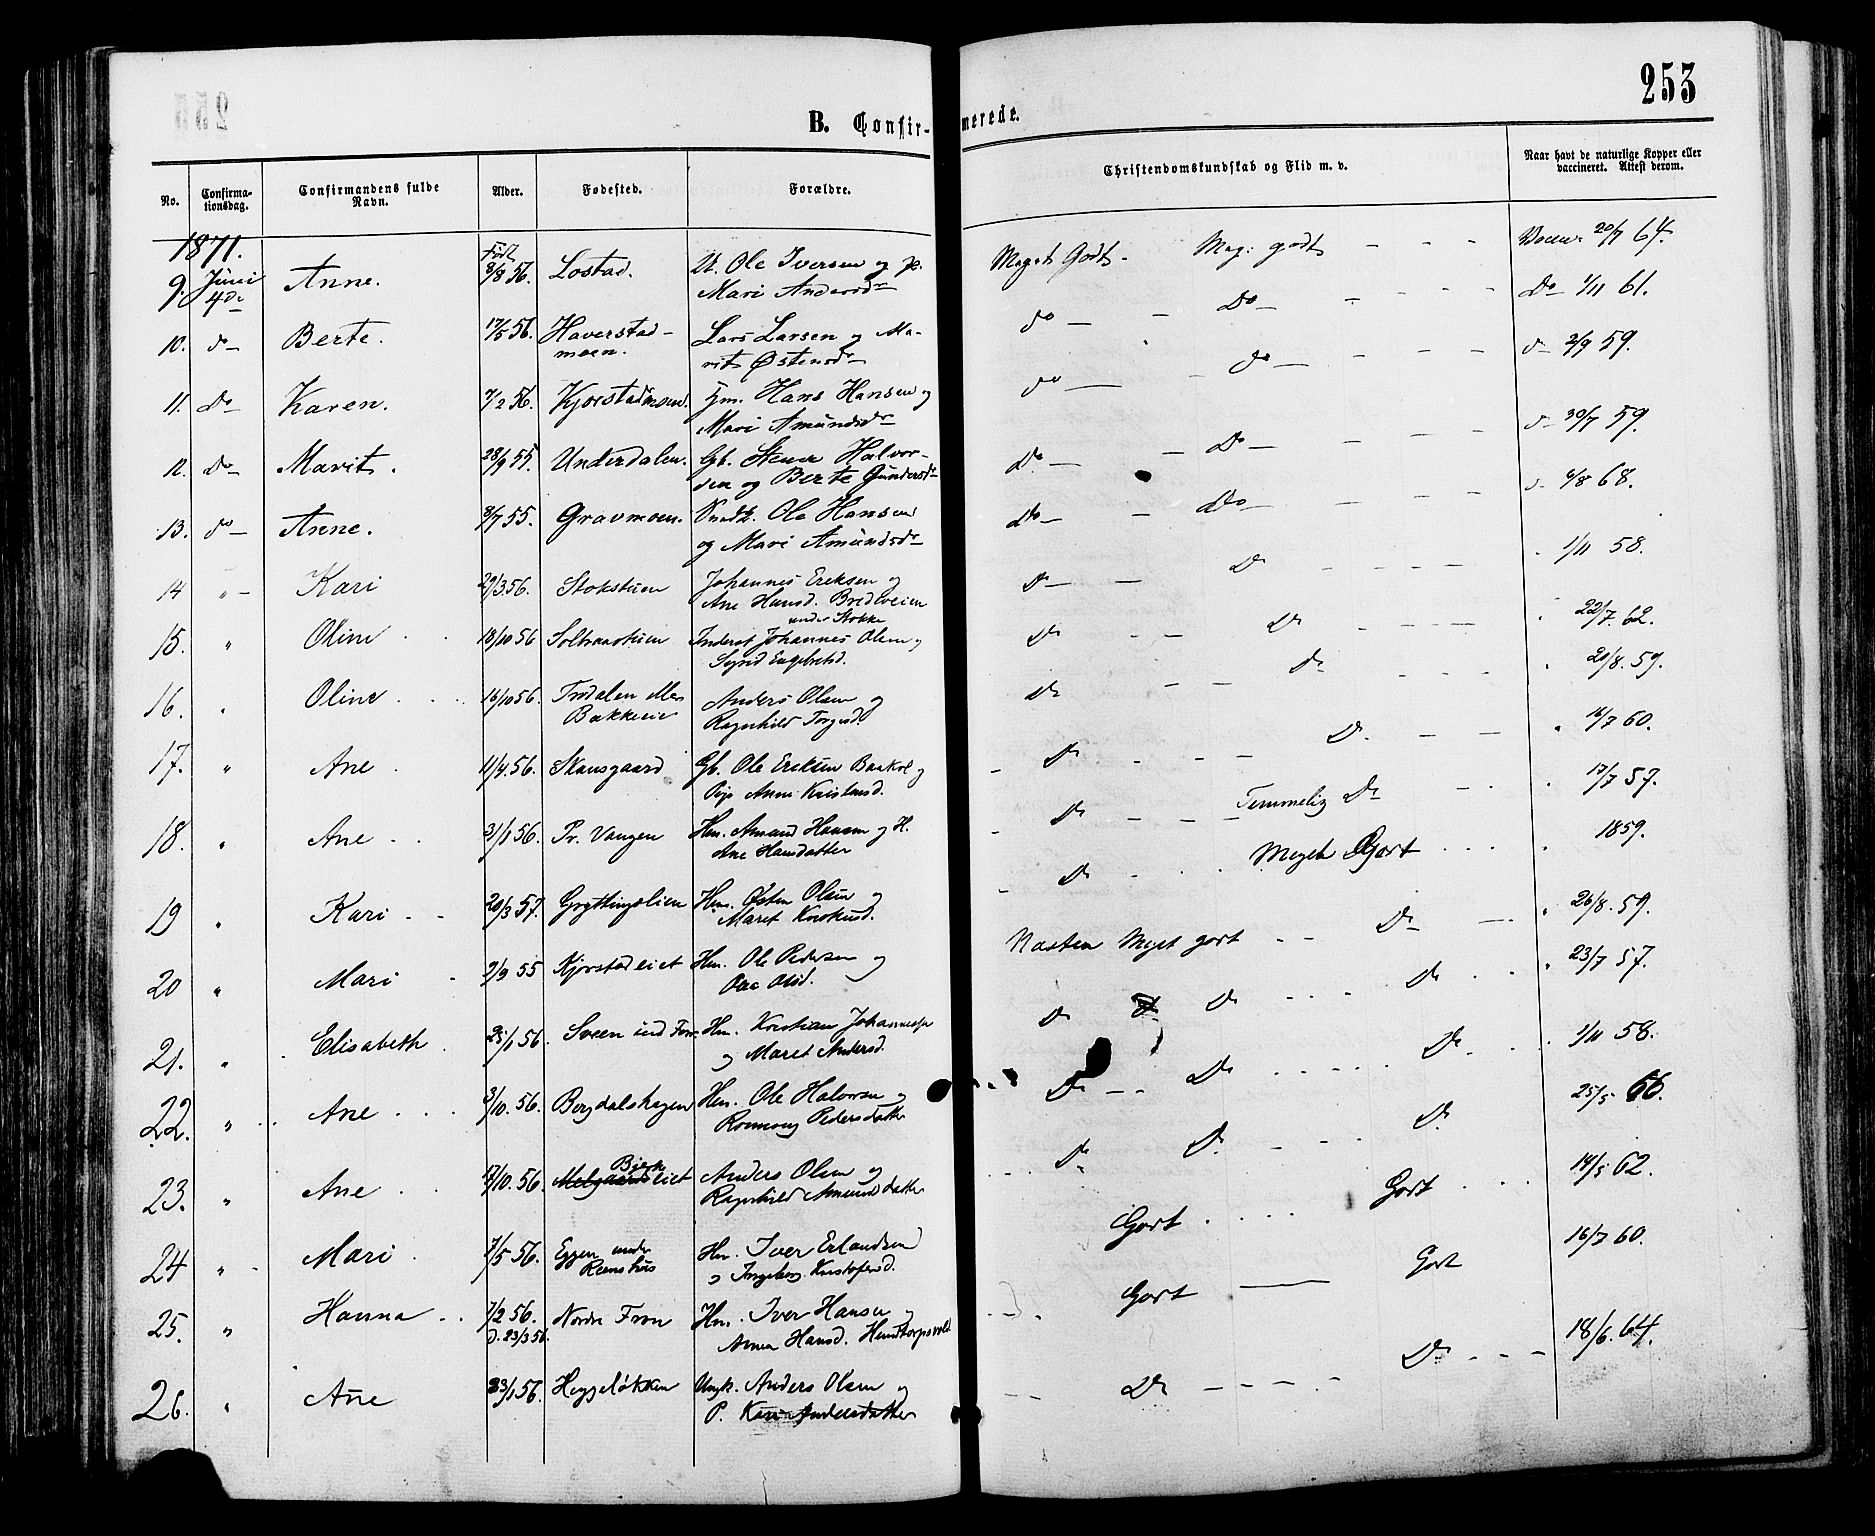 253
B. Confir- merede.
No. Confirma-
tionsdag. Confirmandens fulde
Navn. Alder. Fødested. Forældre. Christendomskundskab og Flid m. v. Naar havt de naturlige Kopper eller
vaccineret. Attest derom.
1871.
9. Juni Anne. Født
4de 8/8 56. Lostad. U. Ole Iversen og p.
Mari Andersdr
Meget Godt - Meg. godt - - - 20/7 64.
10. do - Berte. 17/5 56. Haverstad-
moen. Lars Larsen og Ma-
rit Østensdr
do - - Do - - - - - Do - 1/11 61.
11. Do - Karen. 7/2 56. Kjorstadmoen. Hm. Hans Hansen og
Mari Amundsdr
do - do - - - - do - 2/9 59.
12. Do - Marit. 28/9 55. Underdalen. Gb. Stener Halvor-
sen og Berte Gundersdr
Do - - Do - - - - do - 30/7 59.
13. do - Anne. 8/7 55. Gravmoen. Ole Hansen
og Mari Amundsdr
Do - - Do - - - - 6/8 68.
14 " - Kari 29/3 56. Stokstuen Johannes Eriksen og
Ane Hansd. Bredeveien
under Stokke
Do - - Do - - - - 1/11 58.
15. " Oline . . 18/10 56 Solbraastuen Inderst Johannes Olsen og
Syrid Engebretsd.
Do - - Do - - - - 22/7. 62.
16. " Oline . . . 16/10 56. Trodalen
Bakkeeie Anders Olsen og
Ragnhild
Do - - - Do - - - 20/8. 59.
17. " Ane . 11/4. 56. Skansgaard Gb. Ole Eriksen Baukol og
Pige Anne Kristensd.
- Do - - - Do. - - " 16/7 60.
18. " Ane . . 31/1 56. Pr. Vangen Hm. Amund Hansen og H.
Ane Hansdatter
- Do - - - Temmelig Do - - . . 17/7 57.
19 " Kari - - 20/3 57. Gryttingslien Hm. Østen Olsen og
Maret Knudsd.
- Do - . . Meget Gjort . . . . 1859.
20 " Mari - 2/9 55 Kjorstadeiet Hm. Ole Pedersen og
Olsd.
Næsten Meget gort - - Do - - " 26/8. 59.
21. " . Elisabeth . 25/1 56. Sveen ind Fron Hm. Kristian Johannessen
og Maret Andersd.
Do Do - - - - Do . . . " 23/7 57.
22. " . . Ane . . . 3/10. 56. Bergdalshagen Hm. Ole Halvorsen og
Ronnoug Pedersdatter
Do - - Do - - - - - Do - . . 1/11 58.
23. " Ane . . 17/10. 56. Bjerke
Melgaardseiet Anders Olsen og
Ragnhild Amundsdatter
Do - Do. - - - - Do 25/5 66.
24 " - Mari . 7/5 56. Eggen under
Reenshus Hm. Iver Erlandsen
og Ingeborg Kristofersd.
Gort . . . . Gort . . . 14/5 62.
25. " Hanna . . 7/2 56.
D. 23/3 56. Nordre Fron Hm. Iver Hansen og
Anne Hansd. Hundtorpsvold
Gort - Gort 16/7 60.
26. " Ane 23/1 56. Heggeløkken Ungk. Anders Olsen og
P. Kari Andersdatter
Do - - - - - Do . - - - 18/6. 64.